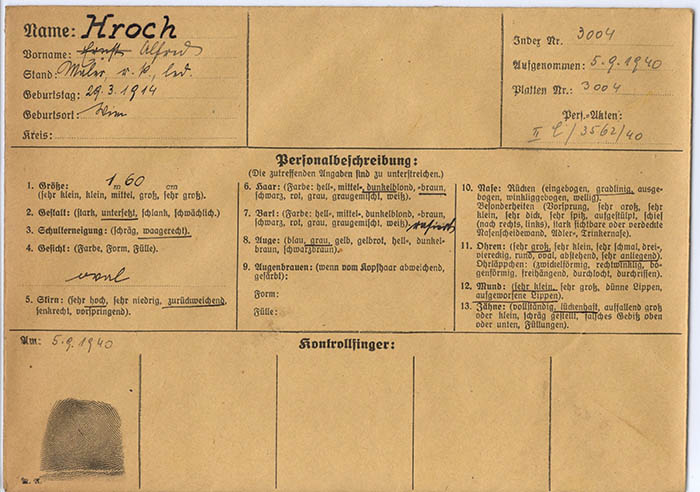 Name: Hroch
Vorname: Ernst Alfred
Stand: Maler, r. k., led.
Geburtstag: 29.3.1914
Geburtsort: Wien
Kreis:
Index Nr. 3004
Aufgenommen: 5.9.1940
Platten Nr.: 3004
Pers.-Akten:
II /3562/40
Personalbeschreibung:
(Die zutreffenden Angaben sind zu unterstreichen.)
1. Größe: 1 m 60 cm
(sehr klein, klein, mittel, groß, sehr groß).
2. Gestalt: (stark, untersetzt, schlank, schwächlich.)
3. Schulterneigung: (schräg, waagerecht).
4. Gesicht: (Farbe, Form, Fülle).
oval
5. Stirn: (sehr hoch, sehr niedrig, zurückweichend,
senkrecht, vorspringend).
6. Haar: (Farbe: hell-, mittel-, dunkelblond, -braun,
schwarz, rot, grau, graugemischt, weiß).
7. Bart: (Farbe: hell-, mittel-, dunkelblond, -braun,
schwarz, rot, grau, graugemischt, weiß). rasiert
8. Auge: (blau, grau, gelb, gelbrot, hell-, dunkel-
braun, schwarzbraun).
9. Augenbrauen: (wenn vom Kopfhaar abweichend,
gefärbt):
Form:
Fülle:
10. Nase: Rücken (eingebogen, gradlinig, ausge-
bogen, winkliggebogen, wellig).
Besonderheiten (Vorsprung, sehr groß, sehr
klein, sehr dick, sehr spitz, aufgestülpt, schief
(nach rechts, links), stark sichtbare oder verdeckte
Nasenscheidewand, Adler-, Trinkernase).
11. Ohren: (sehr groß, sehr klein, sehr schmal, drei-,
viereckig, rund, oval, abstehend, sehr anliegend).
Ohrläppchen: (zwickelförmig, rechtwinklig, bo-
genförmig, freihängend, durchlocht, durchrissen).
12. Mund: (sehr klein, sehr groß, dünne Lippen,
aufgeworfene Lippen).
13. Zähne: (vollständig, lückenhaft, auffallend groß
oder klein, schräg gestellt, falsches Gebiß oben
oder unten, Füllungen).
Am: 5.9.1940
Kontrollfinger: